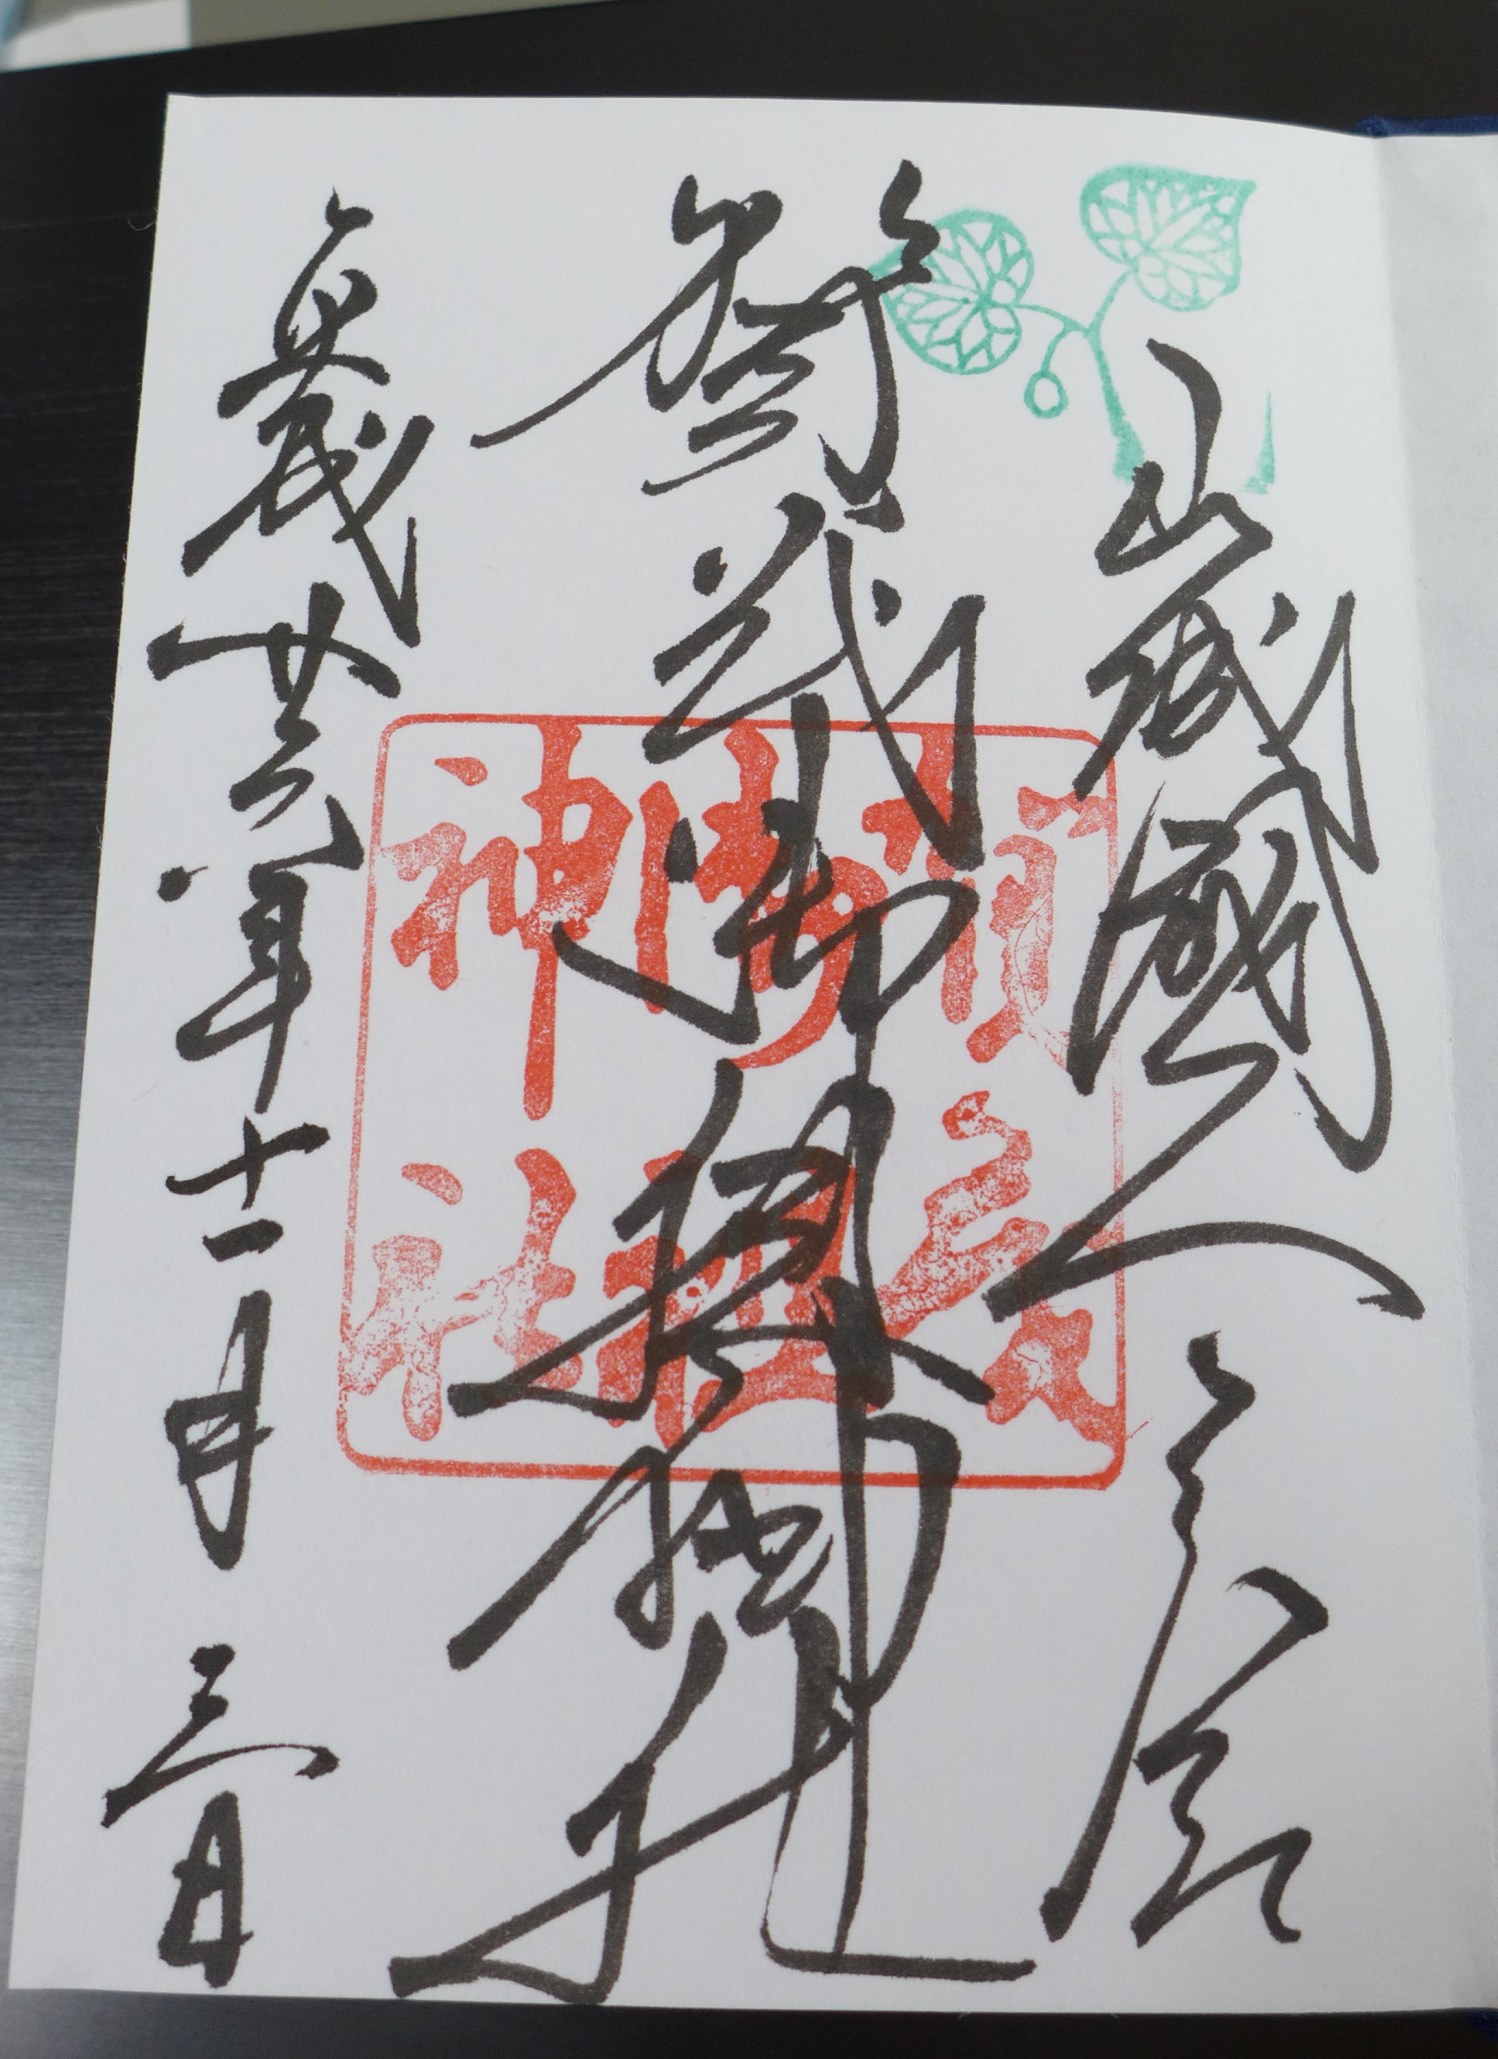 山城國一宮
賀茂御祖神社
賀茂
御祖
神社
廿六年十一月三日